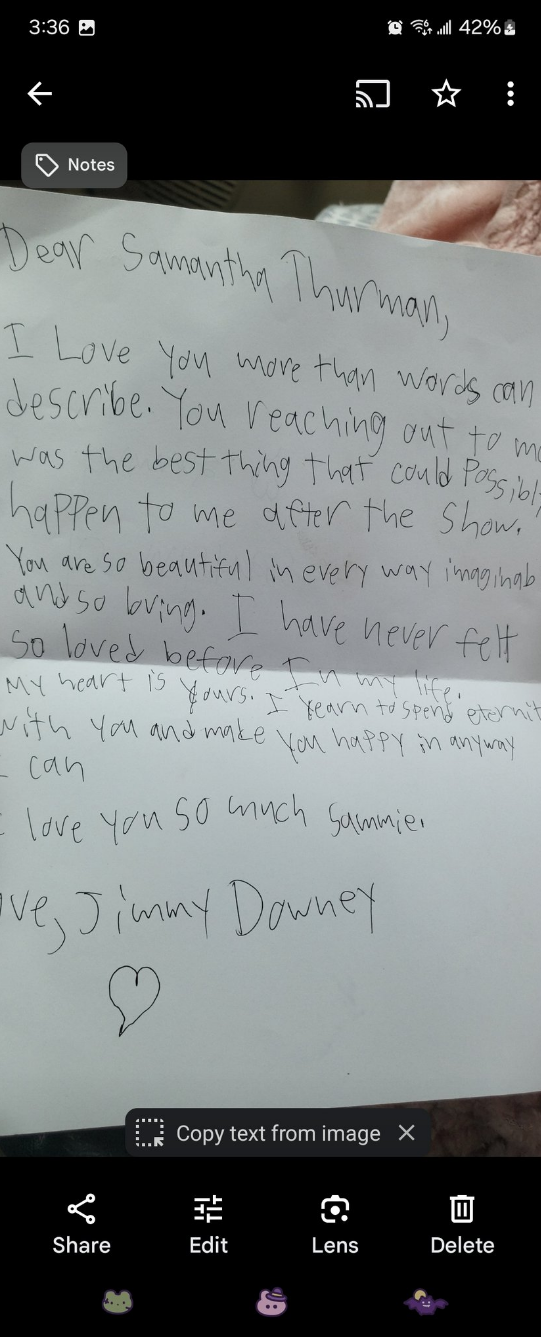 3:36
42%
Notes
Dear Samantha Thurman,
I Love you more than words can
describe. You reaching out to m
was the best thing that could Possibl
happen to me after the show.
You are so beautiful in every way imaginab
and so loving. I have never felt
so loved before In my life.
My heart is yours. I Yearn to spend eternit
with you and make you happy in anyway
I can
I love you so much Sammie.
ove, Jimmy Downey
Copy text from image
Share
Edit
Lens
Delete